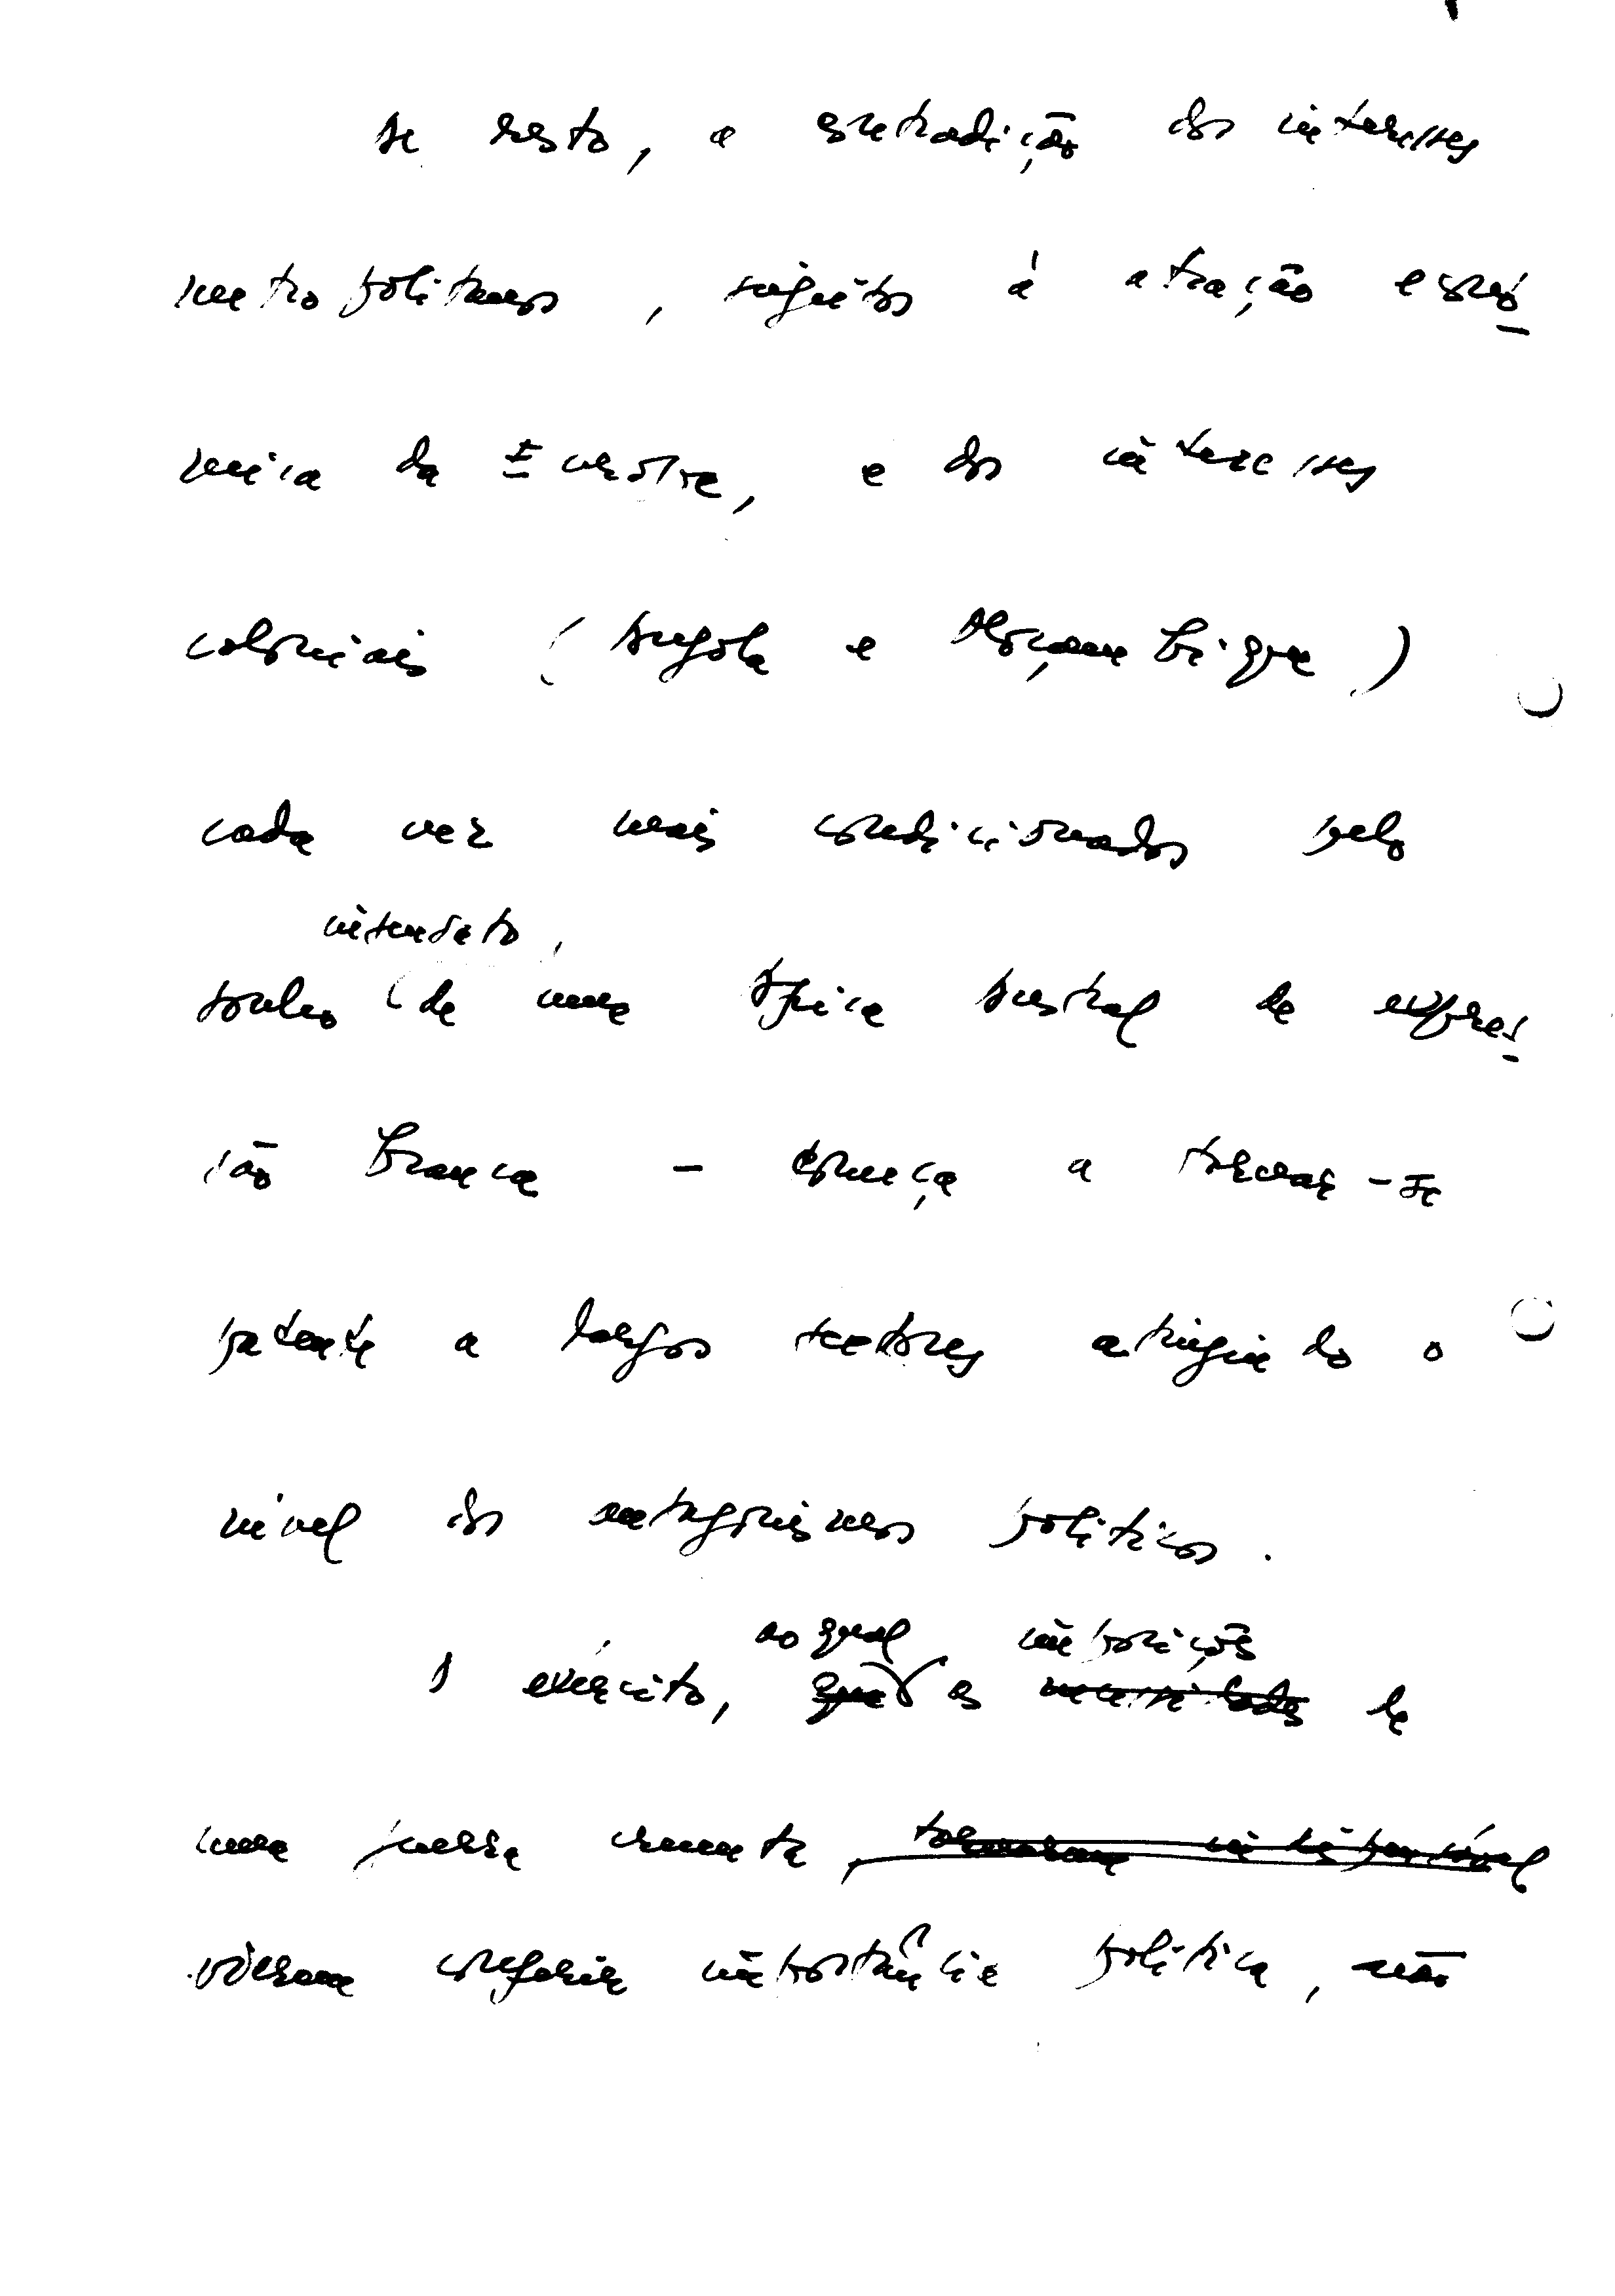 De resto, a contradição dos interesses
metropolitanos, sujeitos à atração econó
mica da Europa, e dos interesses
coloniais (Angola e Moçambique)
cada vez mais condicionados pelo
insensato,
sonho de uma África Austral de expres
são branca - começa a tornar-se
patente a largos sectores atingindo o
nível dos antagonismos políticos.
ao qual imposições
O exército, que as necessidades de
uma guerra cruenta, tornaram indispensável
vieram conferir importância política, não